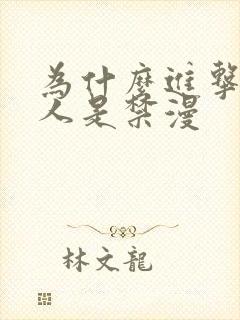 為什麼進擊
人是禁漫
林文龍